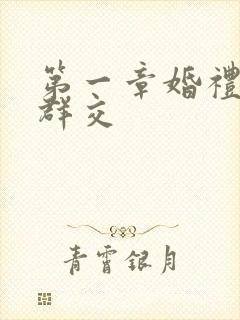 第一章婚禮
群交
青霄銀月